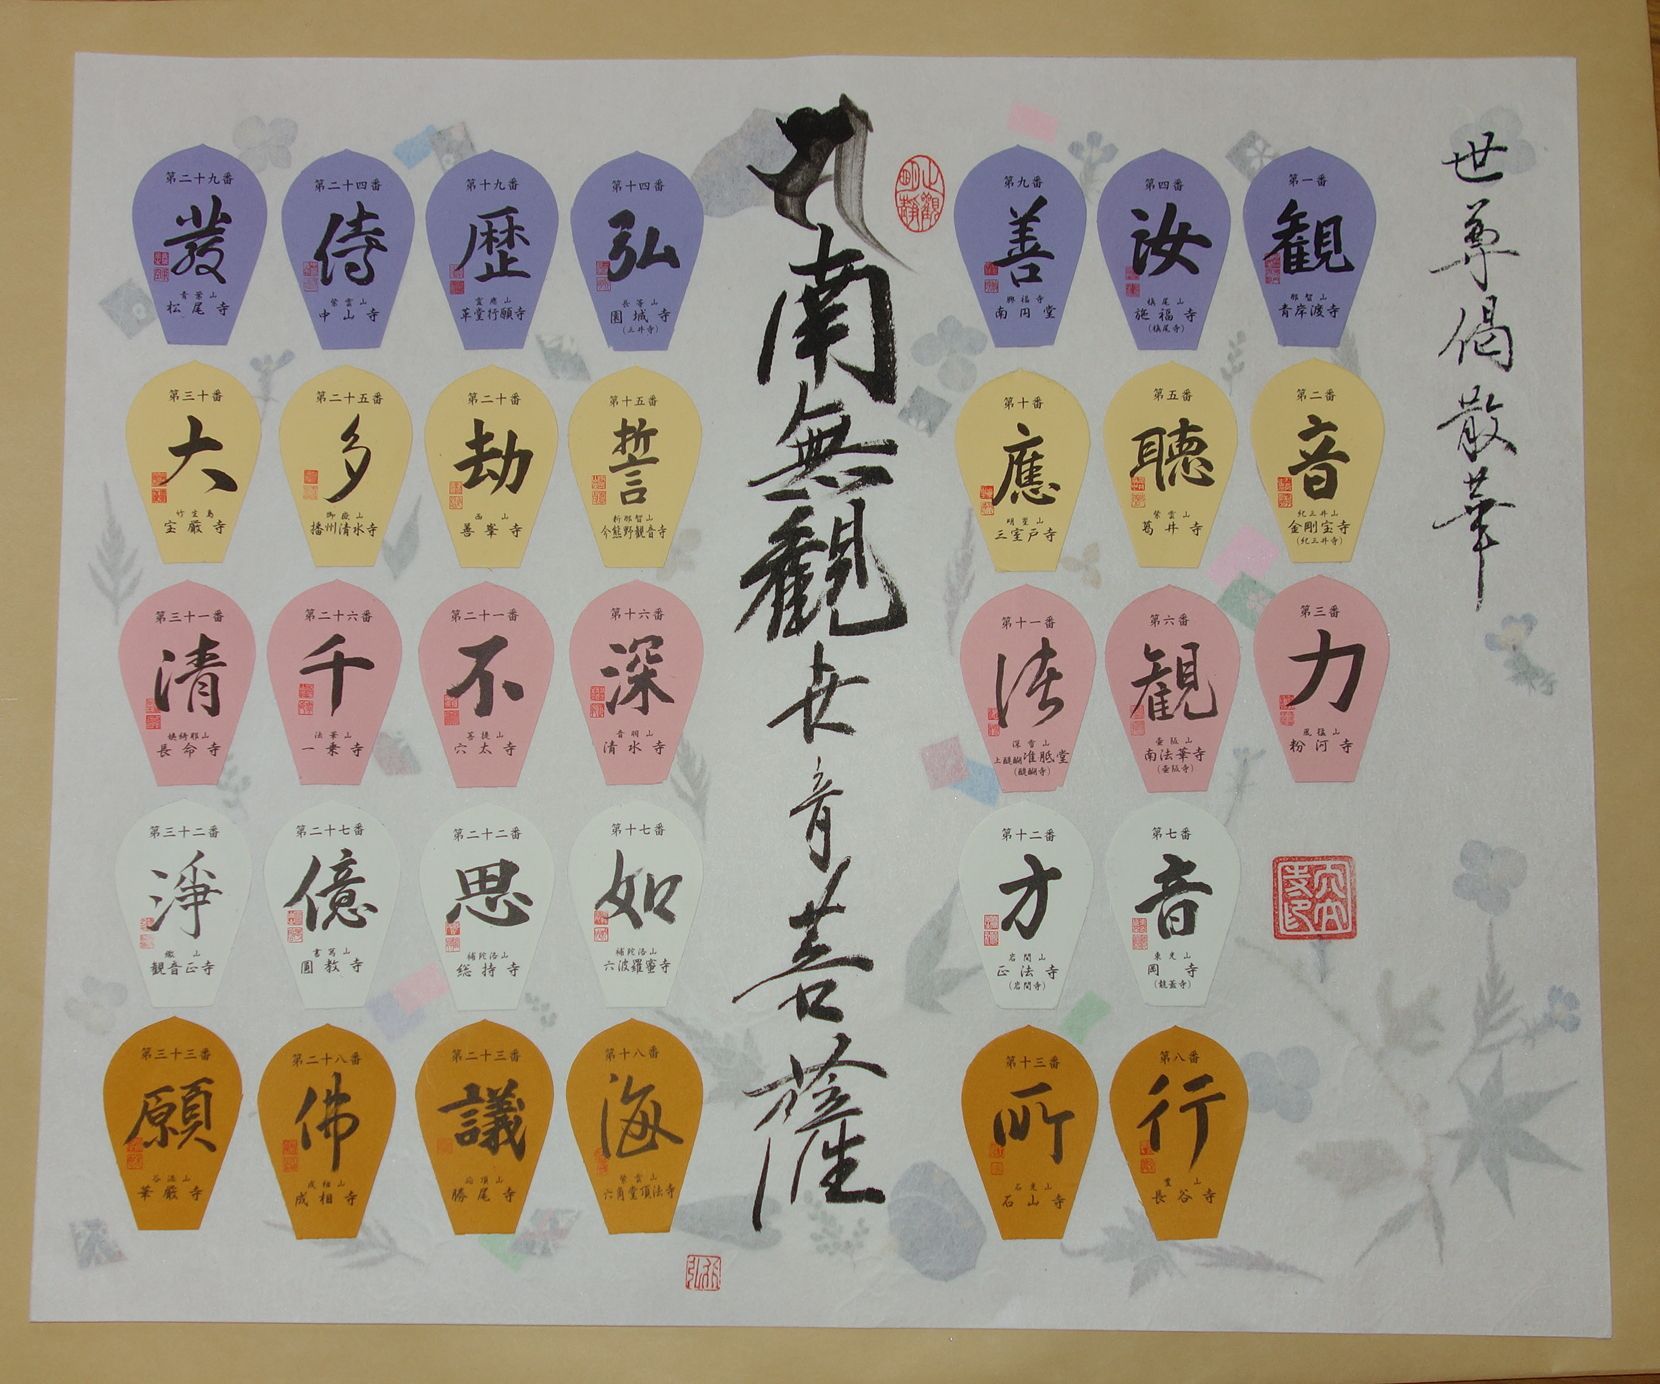 世尊偈散華
第一番
観
那智山
青岸渡寺
第二番
音
紀三井山
金剛宝寺
(紀三井寺)
第三番
力
風猛山
粉河寺
第四番
汝
槙尾山
施福寺
(槙尾寺)
第五番
聴
紫雲山
葛井寺
第六番
観
壷阪山
南法華寺
(壷阪寺)
第七番
音
東光山
岡寺
(龍蓋寺)
第八番
行
豊山
長谷寺
第九番
善
興福寺
南円堂
第十番
應
明星山
三室戸寺
第十一番
諸
深雪山
上醍醐准胝堂
(醍醐寺)
第十二番
方
岩間山
正法寺
(岩間寺)
第十三番
所
石光山
石山寺
南無觀世音菩薩
第十四番
弘
長等山
園城寺
(三井寺)
第十五番
誓
新那智山
今熊野観音寺
第十六番
深
音羽山
清水寺
第十七番
如
補陀洛山
六波羅蜜寺
第十八番
海
紫雲山
六角堂頂法寺
第十九番
歴
霊麀山
革堂行願寺
第二十番
劫
西山
善峯寺
第二十一番
不
菩提山
穴太寺
第二十二番
思
補陀洛山
総持寺
第二十三番
議
応頂山
勝尾寺
第二十四番
侍
紫雲山
中山寺
第二十五番
多
御嶽山
播州清水寺
第二十六番
千
法華山
一乗寺
第二十七番
億
書写山
圓教寺
第二十八番
佛
成相山
成相寺
第二十九番
發
青葉山
松尾寺
第三十番
大
竹生島
宝厳寺
第三十一番
清
姨綺耶山
長命寺
第三十二番
淨
繖山
観音正寺
第三十三番
願
谷汲山
華厳寺